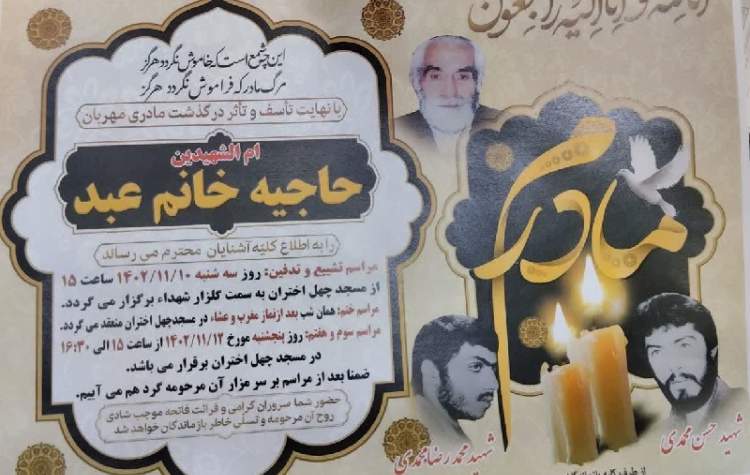 انا لله و انا الیه راجعون
این چشمع است که خاموش نگردد هرگز
مرگ مادر که فراموش نگردد هرگز
با نهایت تأسف و تأثر درگذشت مادری مهربان
ام الشهیدین
حاجیه خانم عبد
را به اطلاع کلیّه آشنایان محترم می رساند
مراسم تشییع و تدفین: روز سه شنبه ۱۴۰۲/۱۱/۱۰ ساعت ۱۵
از مسجد چهل اختران به سمت گلزار شهداء برگزار می گردد.
مراسم ختم: همان شب بعد از نماز مغرب و عشاء در مسجد چهل اختران منعقد می گردد.
مراسم سوم و هفتم: روز پنجشنبه مورخ ۱۴۰۲/۱۱/۱۲ از ساعت ۱۵ الی ۱۶:۳۰
در مسجد چهل اختران برقرار می باشد.
ضمنا بعد از مراسم بر سر مزار آن مرحومه گرد هم می آییم.
حضور شما سروران گرامی و قرائت فاتحه موجب شادی
روح آن مرحومه و تسلّی خاطر بازماندگان خواهد شد
مادرم
شهید محمدرضا محمدی
شهید حسن محمدی
از طرف